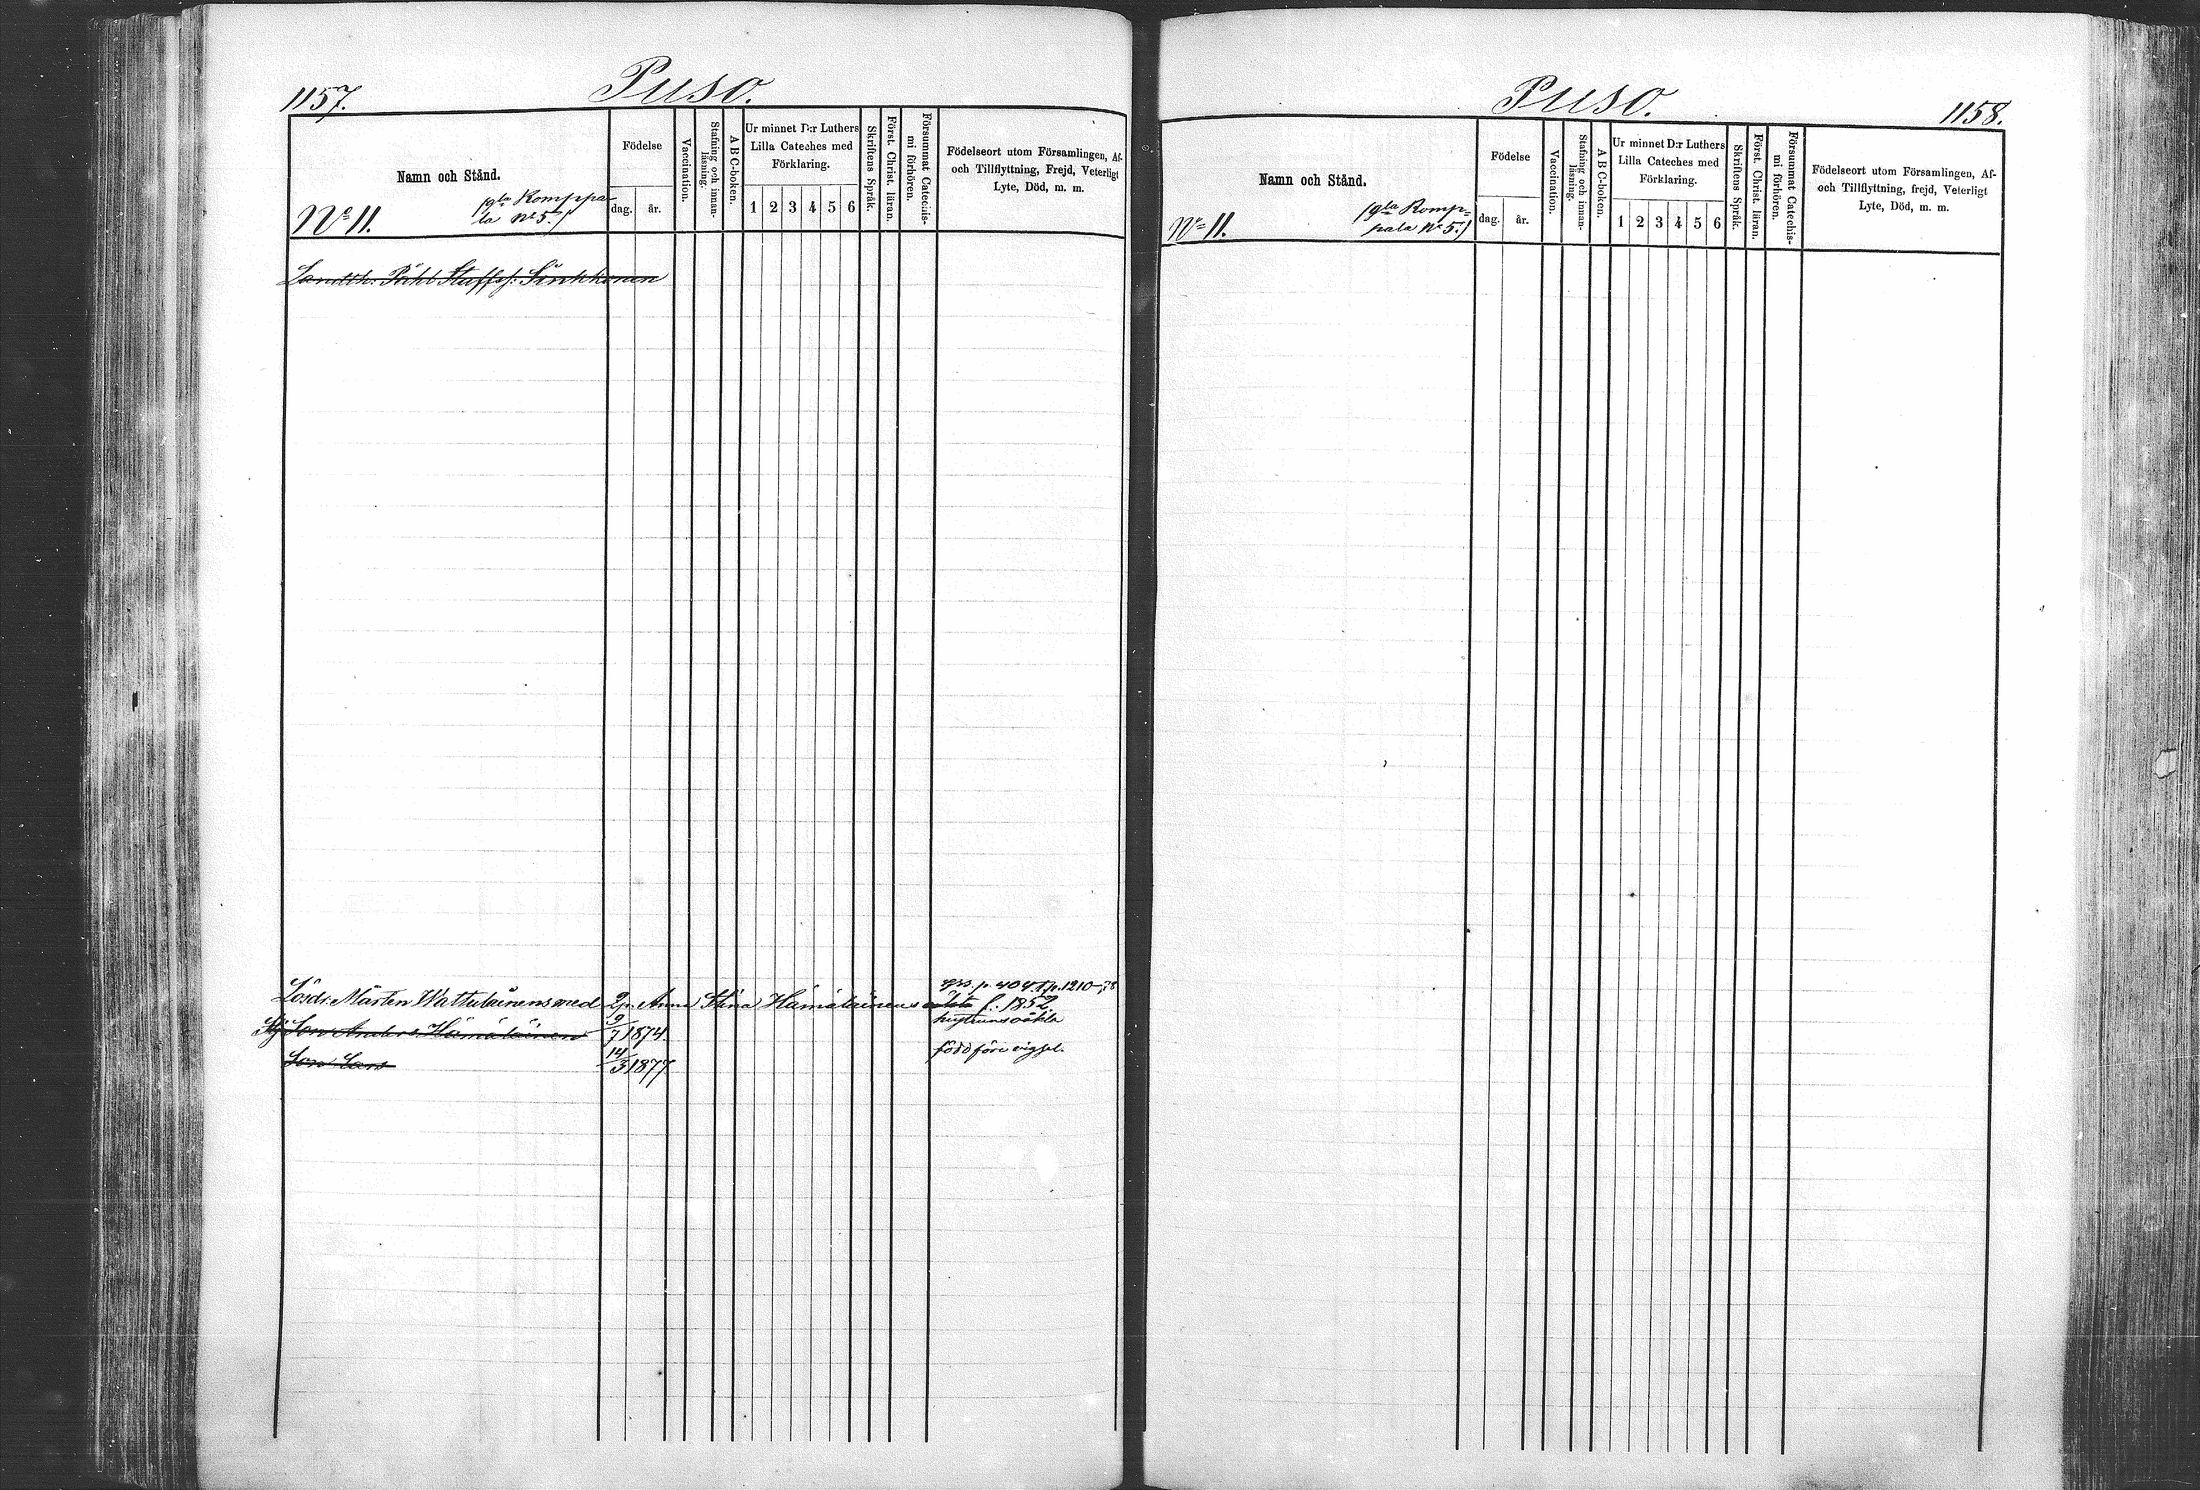 1157.
Puso.
Namn och Stånd.
Födelse
dag.
år.
Vaccination.
Stafning och innan-
läsning.
A B C-boken.
Ur minnet D:r Luthers
Lilla Cateches med
Förklaring.
1 2 3 4 5 6
Skriftens Språk.
Först. Christ. läran.
Försummat Catechis-
mi förhören.
Födelseort utom Församlingen, Af-
och Tillflyttning, Frejd, Veterligt
Lyte, Död, m. m.
No 11.
(gla Komppa
la No 5.)
Sinkkonen
p. 404. 1210
Lösdr. Mårten Wattulainens med Anna Stina Hämäläinens f. 1852
Son Anders Hämäläinen 9/7 1874.
Son Lars 14/3 1877. född före vigsel.
Puso.
1158.
Namn och Stånd.
Födelse
dag.
år.
Vaccination.
Stafning och innan-
läsning.
A B C-boken.
Ur minnet D:r Luthers
Lilla Cateches med
Förklaring.
1 2 3 4 5 6
Skriftens Språk.
Först. Christ. läran.
Försummat Catechis-
mi förhören.
Födelseort utom Församlingen, Af-
och Tillflyttning, frejd, Veterligt
Lyte, Död, m. m.
No 11.
(gla Komp-
pala No 5.)